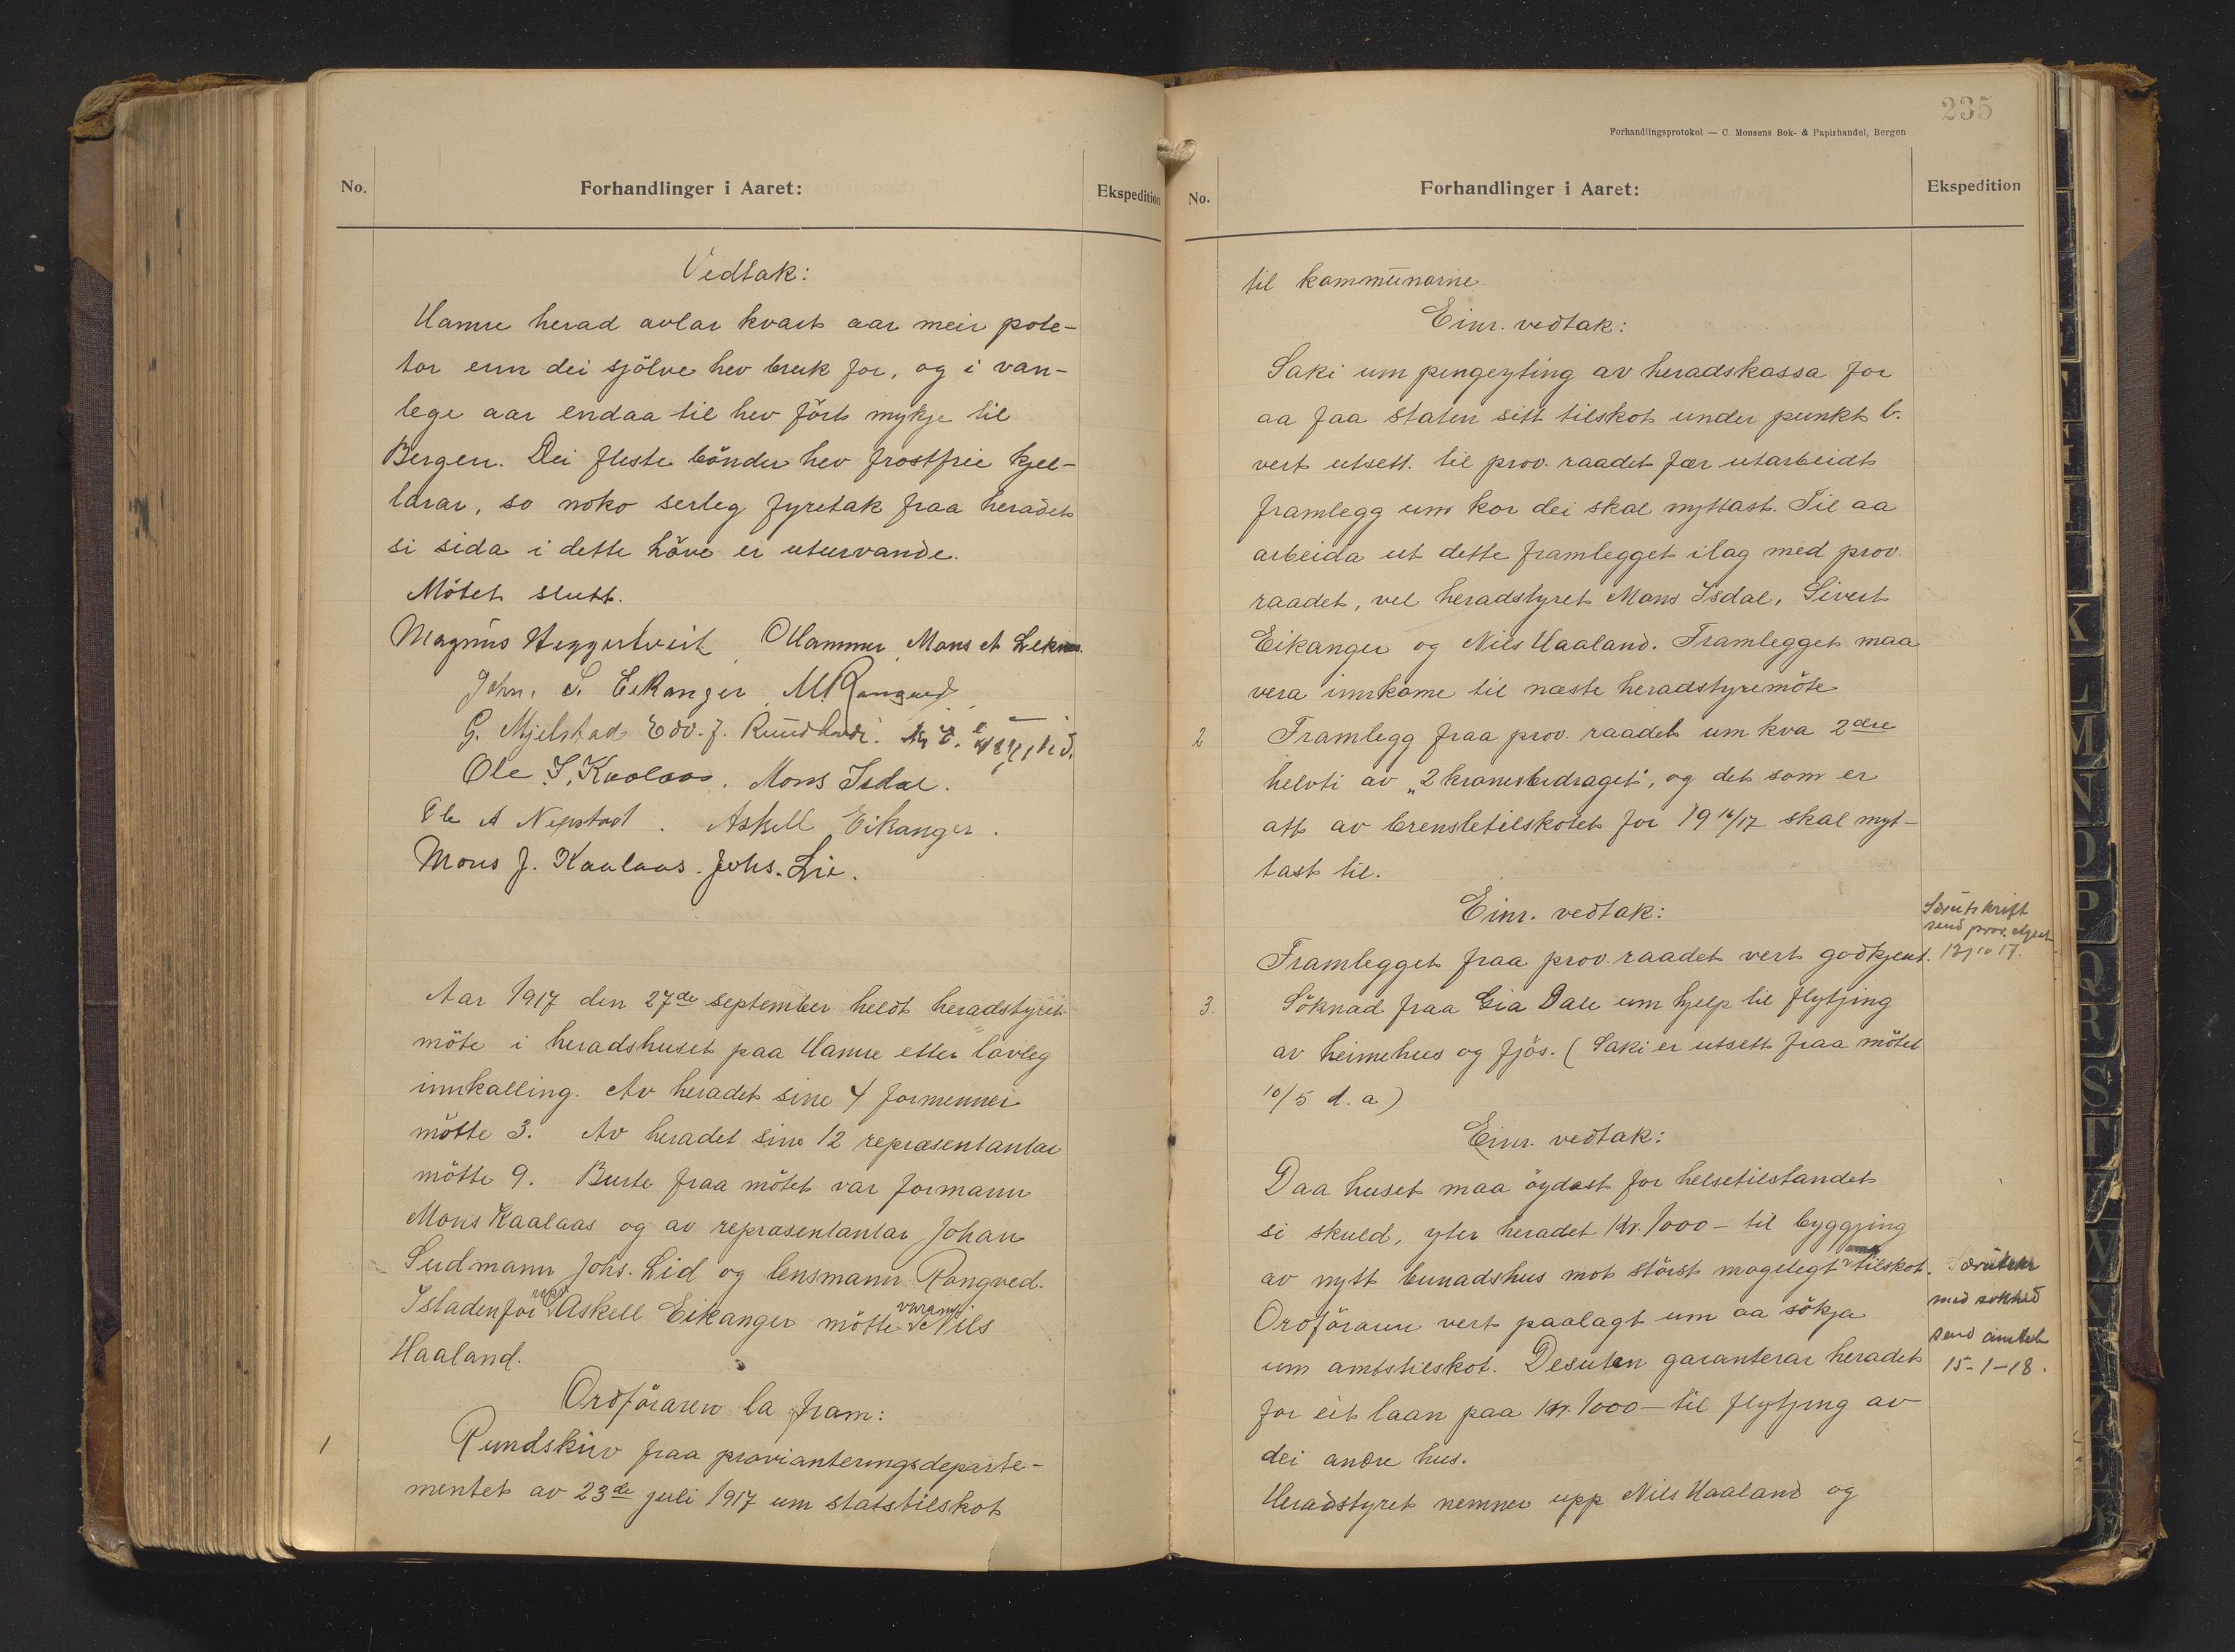 No.
Forhandlinger i Aaret:
Ekspedition
Vedtak:
Hamre herad avlar kvart aar meir pote-
tor enn dei sjölve hev bruk for, og i van-
lege aar endaa til hev fört mykje til
Bergen. Dei fleste bönder hev frostfrie kjel-
larar, so noko serleg fyretak fraa heradet
si sida i dette höve er uturvande.
Mötet slutt.
Magnus Heggertveit OHammer Mons A Leknes
John. S. Eikanger M. Rongved
G. Mjelstad Edv. J. Rundhovde.
Ole S. Kaalaas. Mons Isdal.
Ole A Nepstad. Askell Eikanger.
Mons J. Kaalaas. Johs. Lie.
Aar 1917 den 27de september heldt heradstyret
möte i heradshuset paa Hamre etter lovleg
innkalling. Av heradet sine 4 formenner
mötte 3. Av heradet sine 12 repræsentantar
mötte 9. Burte fraa mötet var formann
Mons Kaalaas og av repræsentantar Johan
Sudmann Johs. Lid og lensmann Rongved.
Istadenfor repr. Askell Eikanger mötte varam. Nils
Haaland.
Ordföraren la fram:
1 Rundskriv fraa provianteringsdeparte-
mentet av 23de juli 1917 um statstilskot
235
Forhandlingsprotokol — C. Monsens Bok- & Papirhandel, Bergen
No.
Forhandlinger i Aaret:
Ekspedition
til kommunarne.
Einr. vedtak:
Saki um pengeyting av heradskassa for
aa faa staten sitt tilskot under punkt b.
vert utsett. til prov. raadet fær utarbeidt
framlegg um kor dei skal nyttast. Til aa
arbeida ut dette framlegget ilag med prov.
raadet, vel heradstyret Mons Isdal, Sivert
Eikanger og Nils Haaland. Framlegget maa
vera innkome til næste heradstyremöte
2 Framlegg fraa prov. raadet um kva 2dre
helvti av „2 kronesbidraget", og det som er
att av brensletilskotet for 19 16/17 skal nyt-
tast til.
Einr. vedtak:
Særutskrift
send prov. styret
Framlegget fraa prov. raadet vert godkjent. 12/10 17.
3. Söknad fraa Gia Dale um hjelp til flytjing
av heimehus og fjös. (Saki er utsett fraa mötet
10/5 d. a)
Einr. vedtak:
Daa huset maa öydast for helsetilstandet
si skuld, yter heradet Kr. 1000 — til byggjing
av nytt bunadshus mot störst mogelegt tilskot.
Ordföraren vert paalagt um aa sökja
um amtstilskot. Desuten garanterar heradet
for eit laan paa Kr. 1000 — til flytjing av
dei andre hus.
Særutskr
med söknad
send amtet
15-1-18.
Heradstyret nemner upp Nils Haaland og